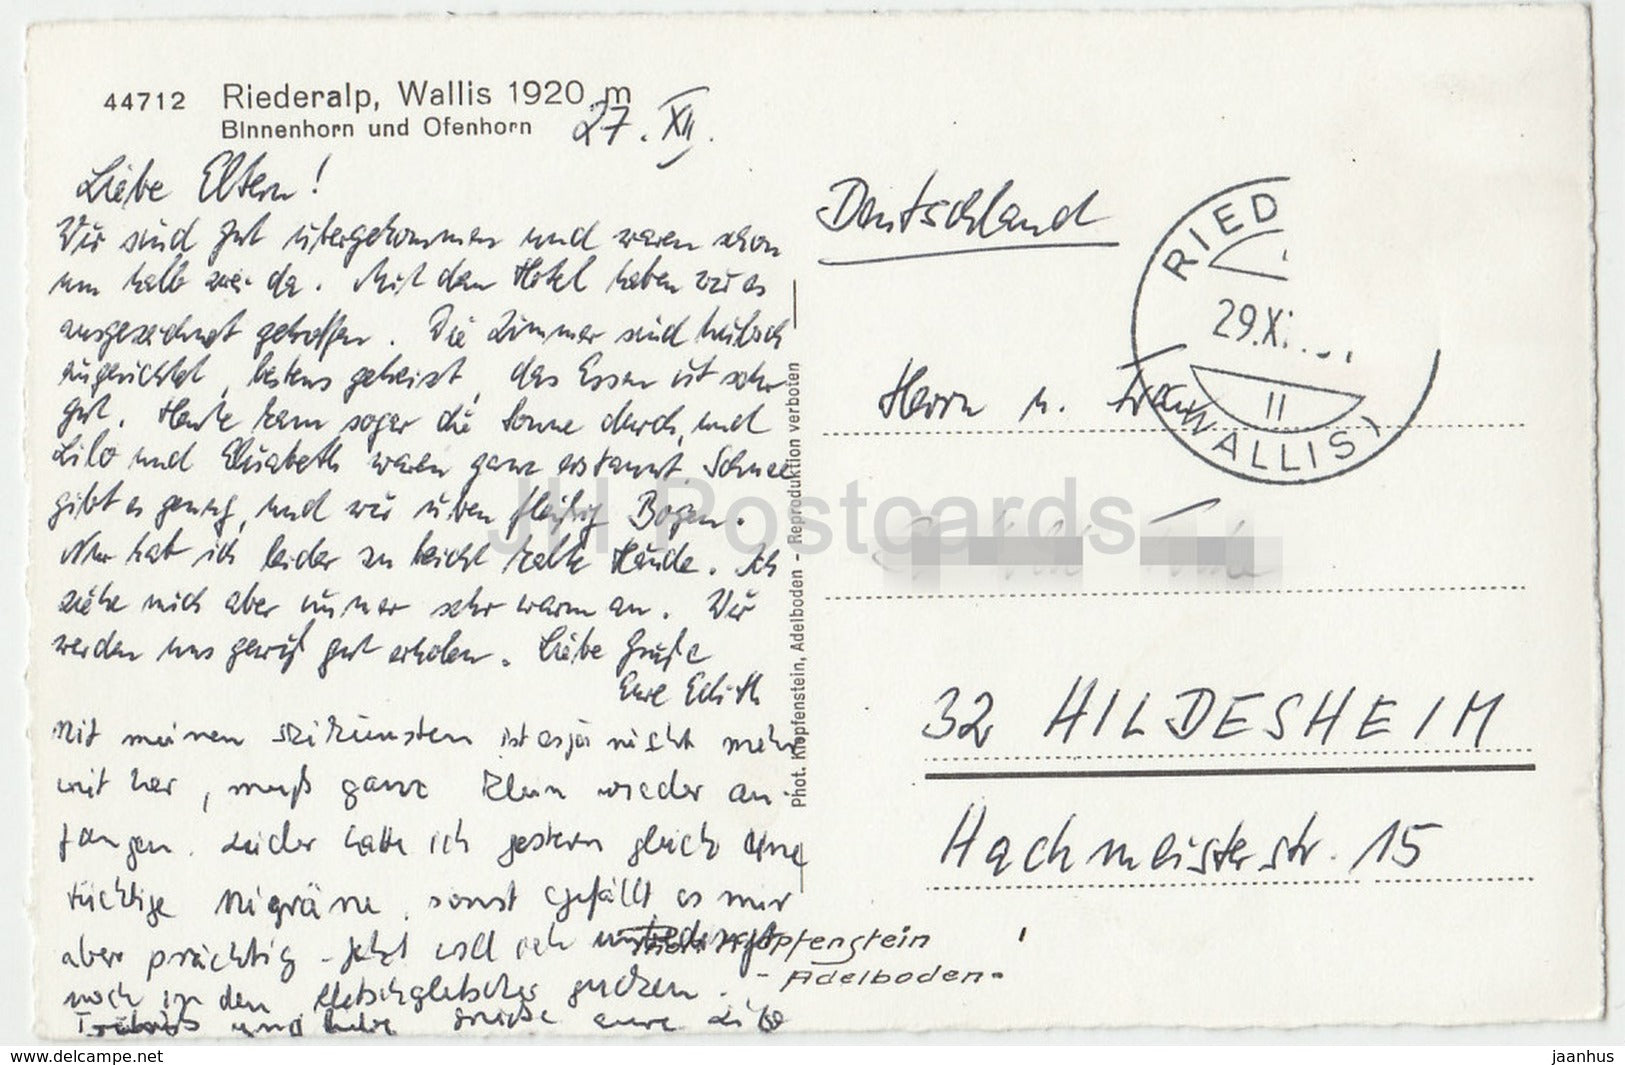 44712 Riederalp, Wallis 1920 m
Binnenhorn und Ofenhorn
27. XII.
Liebe Eltern!
Wir sind gut übergekommen und waren schon
um halb zwei da. Mit dem Hotel haben wir es
ausgezeichnet getroffen. Die Zimmer sind hübsch
eingerichtet, bestens geheizt, das Essen ist sehr
gut. Heute kam sogar die Sonne durch, und
Lilo und Elisabeth waren ganz erstaunt. Schnee
gibt es genug, und wir üben fleißig Bogen.
Nur hat ich leider zu leicht kalte Hände. Ich
ziehe mich aber immer sehr warm an. Wir
werden uns gewiß gut erholen. Liebe Grüße
Eure Edith
Mit meinen Skikünsten ist es ja nicht mehr
weit her, muß ganz klein wieder an-
fangen. Leider hatte ich gestern gleich eine
tüchtige Migräne, sonst gefällt es mir
aber prächtig. Jetzt will ich unbedingt
noch in den Aletschgletscher gucken.
und liebe Grüße eure Lilo
Phot. Klopfenstein, Adelboden - Reproduktion verboten
Klopfenstein
- Adelboden -
Deutschland
RIED
29.XI
II
(WALLIS)
Herrn u. Frau
32 HILDESHEIM
Hachmeisterstr. 15
JH Postcards
www.delcampe.net
jaanhus